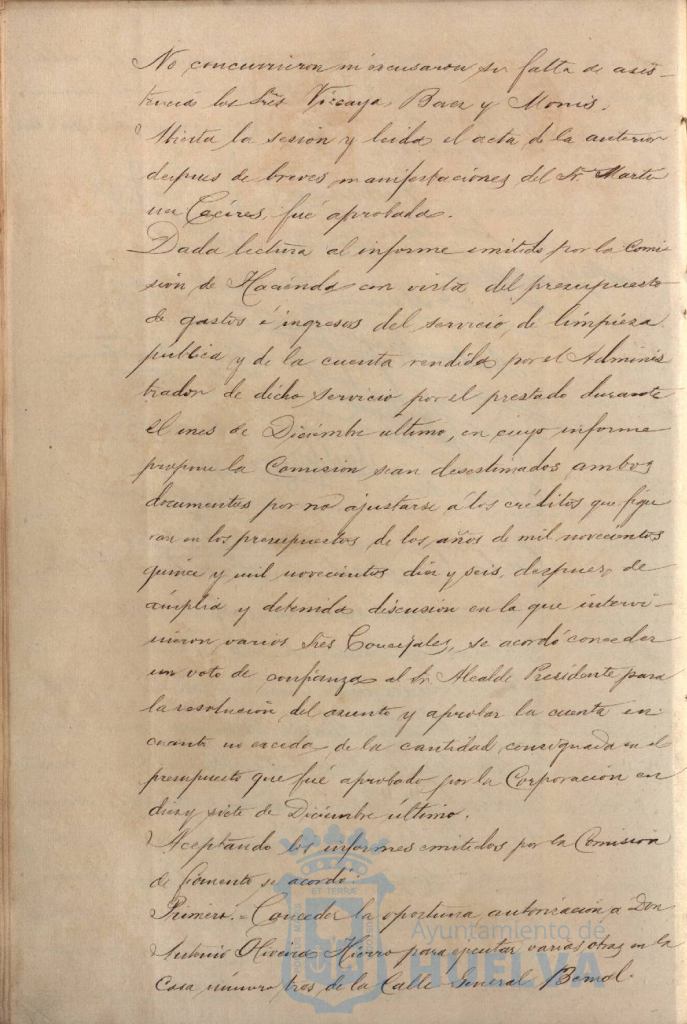 No concurrieron ni excusaron su falta de asis-
tencia los Sres Vizcaya, Baez y Monis.
Abierta la sesión y leida el acta de la anterior
despues de breves manifestaciones del Sr. Marti
nez Cacéres, fué aprobada.
Dada lectura al informe emitido por la Comi
sión de Hacienda con vista del presupuesto
de gastos é ingresos del servicio, de limpieza
publica y de la cuenta rendida por el Adminis
trador de dicho servicio por el prestado durante
el mes de Diciembre ultimo, en cuyo informe
propone la Comision sean desestimados ambos
documentos por no ajustarse á los créditos que figu
ran en los presupuestos de los años de mil novecientos
quince y mil novecientos diez y seis, despues de
amplia y detenida discusion en la que intervi-
nieron varios Sres Concejales, se acordó conceder
un voto de confianza al Sr. Alcalde Presidente para
la resolución del asunto y aprobar la cuenta en
cuanto no exceda de la cantidad consignada en el
presupuesto que fué aprobado por la Corporación en
diez y siete de Diciembre último.
Aceptando los informes emitidos por la Comision
de fomento se acordó:
Primero.- Conceder la oportuna autorización á Don
Antonio Oliveira Hierro para ejecutar varias obras en la
Casa número tres de la Calle General Bernal.
Ayuntamiento de
HUELVA